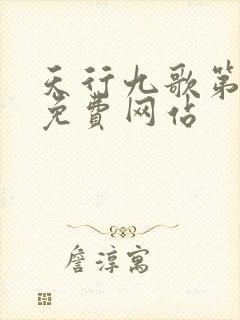 天行九歌第
免费网站
詹淳寓